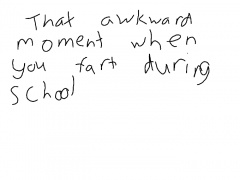 That awkward
moment when
you fart during
school